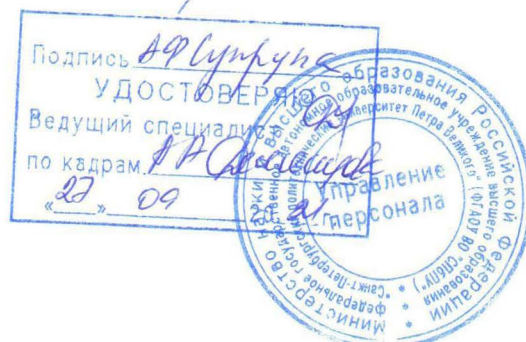 Подпись АФ Супруна
УДОСТОВЕРЯЮ
Ведущий специалист
по кадрам АА
"27" 09 2021 г.
Министерство науки и высшего образования Российской Федерации
федеральное государственное автономное образовательное учреждение высшего образования
"Санкт-Петербургский политехнический университет Петра Великого" (ФГАОУ ВО "СПбПУ")
Управление
персонала